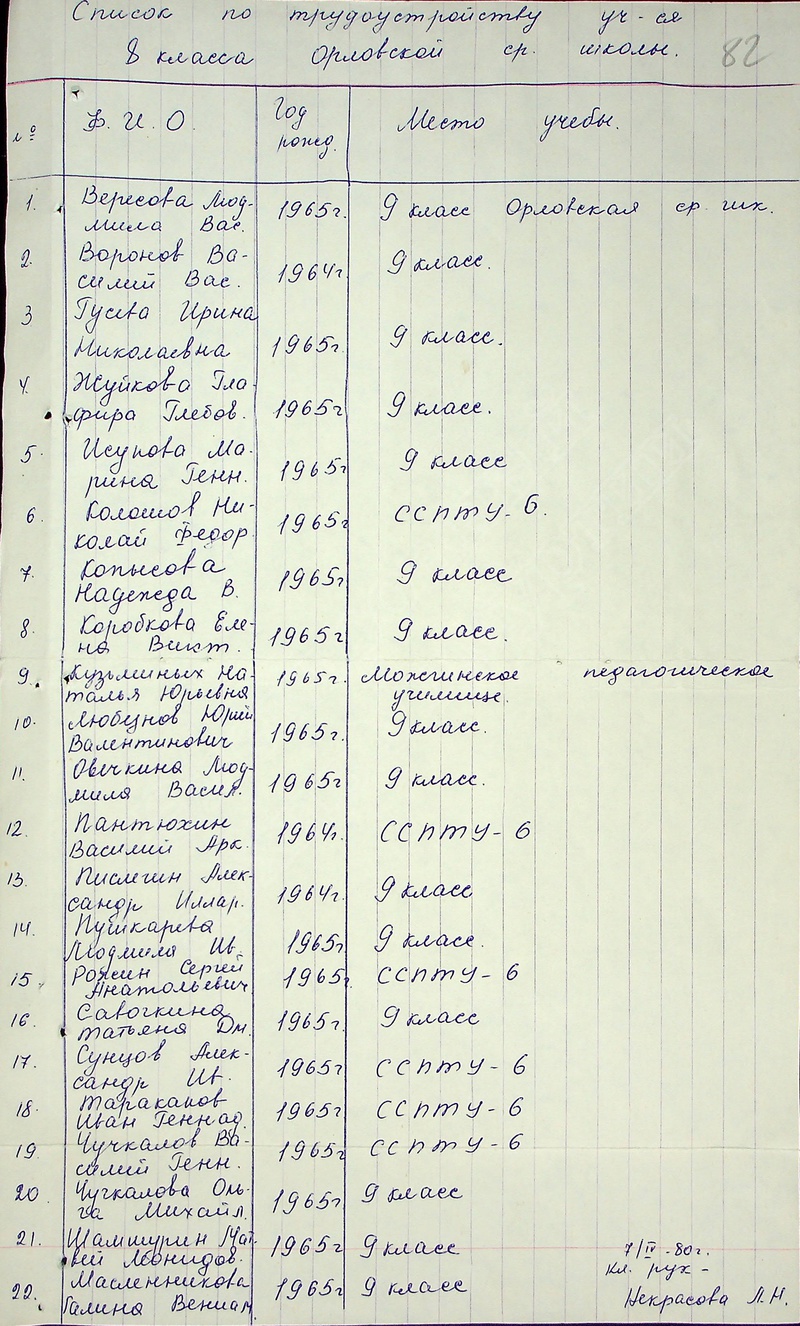 Список по трудоустройству уч-ся
8 класса Орловской ср. школы. 82
№ Ф. И. О. Год рожд. Место учебы.
1. Вересова Люд- 1965г. 9 класс Орловская ср. шк.
мила Вас.
2. Воронов Ва- 9 класс.
силий Вас. 1964г
3 Гусева Ирина
Николаевна 1965г. 9 класс.
4. Жуйкова Гла-
фира Глебов. 1965г 9 класс.
5. Исупова Ма- 9 класс
рина Генн. 1965г
6. Колошов Ни- 1965г ССПТУ-6.
колай Федор.
7. Копысова 1965г 9 класс
Надежда В.
8. Коробкова Еле- 1965г 9 класс.
на Викт.
9. Кузьминых На- 1965г. Можгинское педагогическое
талья Юрьевна училище.
10. Любезнов Юрий 9 класс.
Валентинович 1965г.
11. Овечкина Люд- 1965г 9 класс.
мила Васил.
12. Пантюхин 1964г. ССПТУ-6
Василий Арк.
13. Пислегин Алек- 1964г. 9 класс
сандр Иллар.
14. Пушкарева
Людмила Ив. 1965г 9 класс.
15. Рожин Сергей 1965г. ССПТУ-6
Анатольевич
16. Савочкина 1965г. 9 класс
Татьяна Дм.
17. Сунцов Алек- 1965г ССПТУ-6
сандр Ив.
18. Тараканов 1965г ССПТУ-6
Иван Геннад.
19. Чучкалов Ва- 1965г ССПТУ-6
силий Генн.
20 Чучкалова Оль- 1965г 9 класс
га Михайл.
21. Шамшурин Мат- 1965г 9 класс 7/IV-80г.
вей Леонидов. кл. рук-
22. Масленникова 1965г 9 класс
Галина Вениам. Некрасова Л.Н.